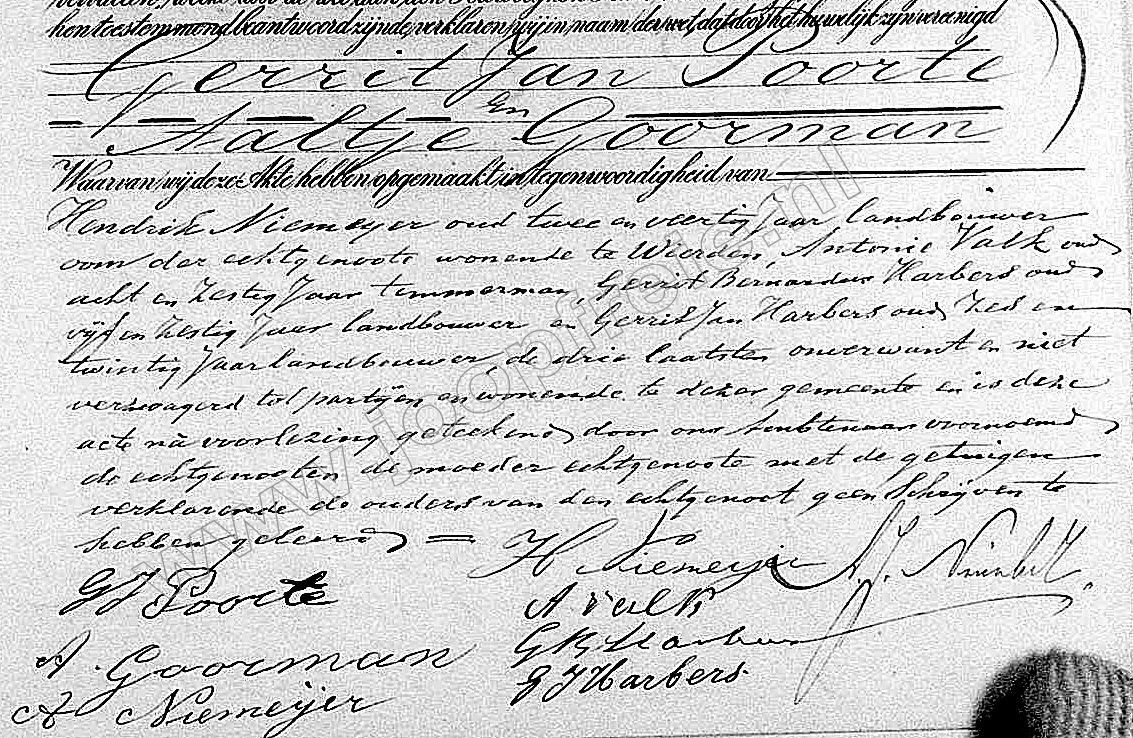 hen toestemmond beantwoord zijnde, verklaren, wij in, naam der wet, dat door het huwelijk zijn vereenigd
Gerrit Jan Poorte
En
Aaltje Goorman
Waarvan wij deze Akte hebben opgemaakt in tegenwoordigheid van
Hendrik Niemeyer oud twee en veertig Jaar landbouwer
oom der echtgenoote wonende te Wierden, Antonie Valk oud
acht en Zestig Jaar timmerman, Gerrit Bernardus Harbers oud
vijf en Zestig Jaar landbouwer en Gerrit Jan Harbers oud Zes en
twintig Jaar landbouwer, de drie laatsten onverwant en niet
verzwagerd tot partijen en wonende te dezer gemeente en is deze
acte na voorlezing geteekend door ons Ambtenaar voornoemd
de echtgenooten de moeder echtgenoote met de getuigen
verklarende de ouders van den echtgenoot geen Schrijven te
hebben geleerd
H Niemeijer A. J.
GJ Poorte
A Valk
A Goorman
GB Harbers
GJ Harbers
A Niemeijer
www.jpopfleie.nl